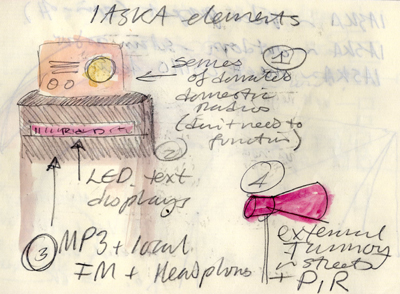 IASKA elements
1
series
of donated
domestic
radios
(don't need to
function)
2
LED text
displays
3 MP3 + local
FM + Headphones
4
external
in streets
+ PIR